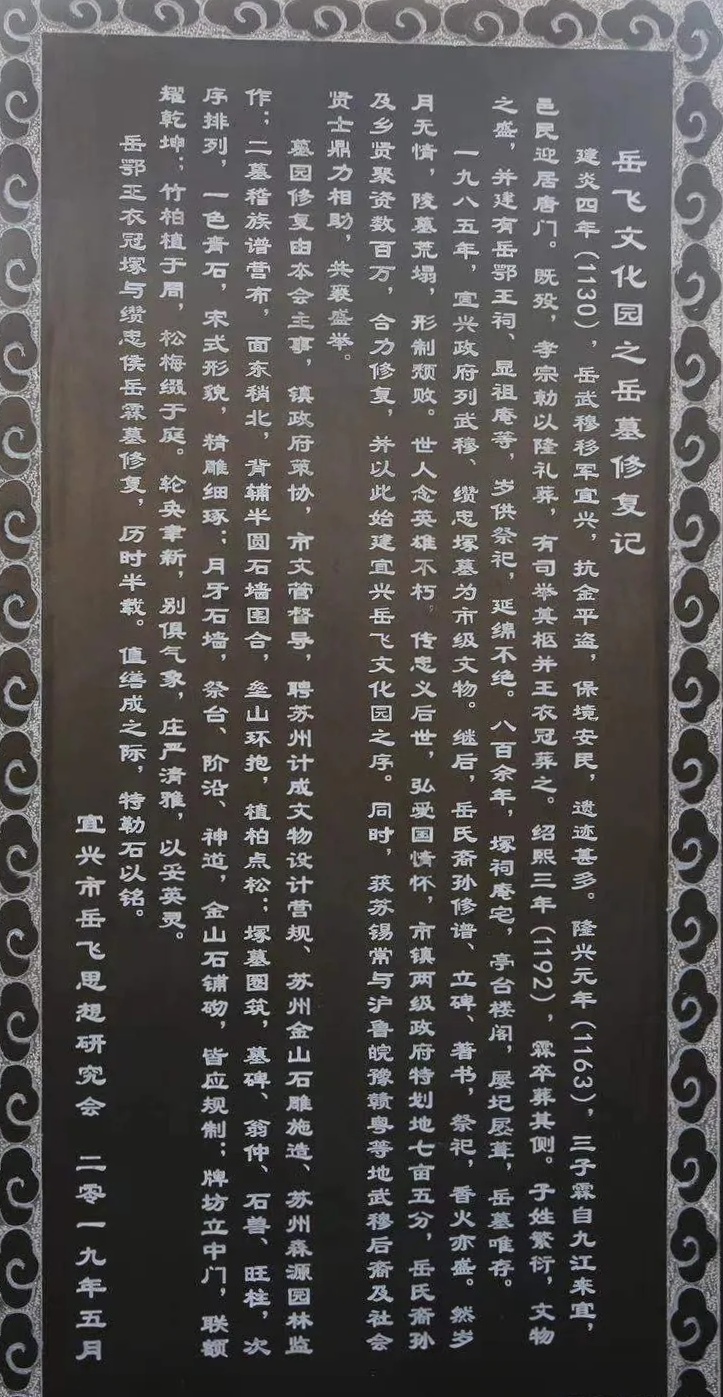 岳飞文化园之岳墓修复记
建炎四年(1130)，岳武穆移军宜兴，抗金平盗，保境安民，遗迹甚多。隆兴元年(1163)，三子霖自九江来宜，
邑民迎居唐门。既殁，孝宗勅以隆礼葬，有司举其柩并王衣冠葬之。绍熙三年(1192)，霖卒葬其侧。子姓繁衍，文物
之盛，并建有岳鄂王祠、显祖庵等，岁供祭祀，延绵不绝。八百余年，塚祠庵宅，亭台楼阁，屡圮屡葺，岳墓唯存。
一九八五年，宜兴政府列武穆、缵忠塚墓为市级文物。继后，岳氏裔孙修谱、立碑、著书，祭祀，香火亦盛。然岁
月无情，陵墓荒塌，形制颓败。世人念英雄不朽，传忠义后世，弘爱国情怀，市镇两级政府特划地七亩五分，岳氏裔孙
及乡贤聚资数百万，合力修复，并以此始建宜兴岳飞文化园之序。同时，获苏锡常与沪鲁皖豫赣粤等地武穆后裔及社会
贤士鼎力相助，共襄盛举。
墓园修复由本会主事，镇政府策协，市文管督导，聘苏州计成文物设计营规、苏州金山石雕施造、苏州森源园林监
作；二墓稽族谱营布，面东稍北，背辅半圆石墙围合，垒山环抱，植柏点松；塚墓圜筑，墓碑、翁仲、石兽、旺柱，次
序排列，一色青石，宋式形貌，精雕细琢；月牙石墙，祭台、阶沿、神道，金山石铺砌，皆应规制；牌坊立中门，联额
耀乾坤；竹柏植于周，松梅缀于庭。轮奂聿新，别俱气象，庄严清雅，以妥英灵。
岳鄂王衣冠塚与缵忠侯岳霖墓修复，历时半载。值缮成之际，特勒石以铭。
宜兴市岳飞思想研究会 二零一九年五月